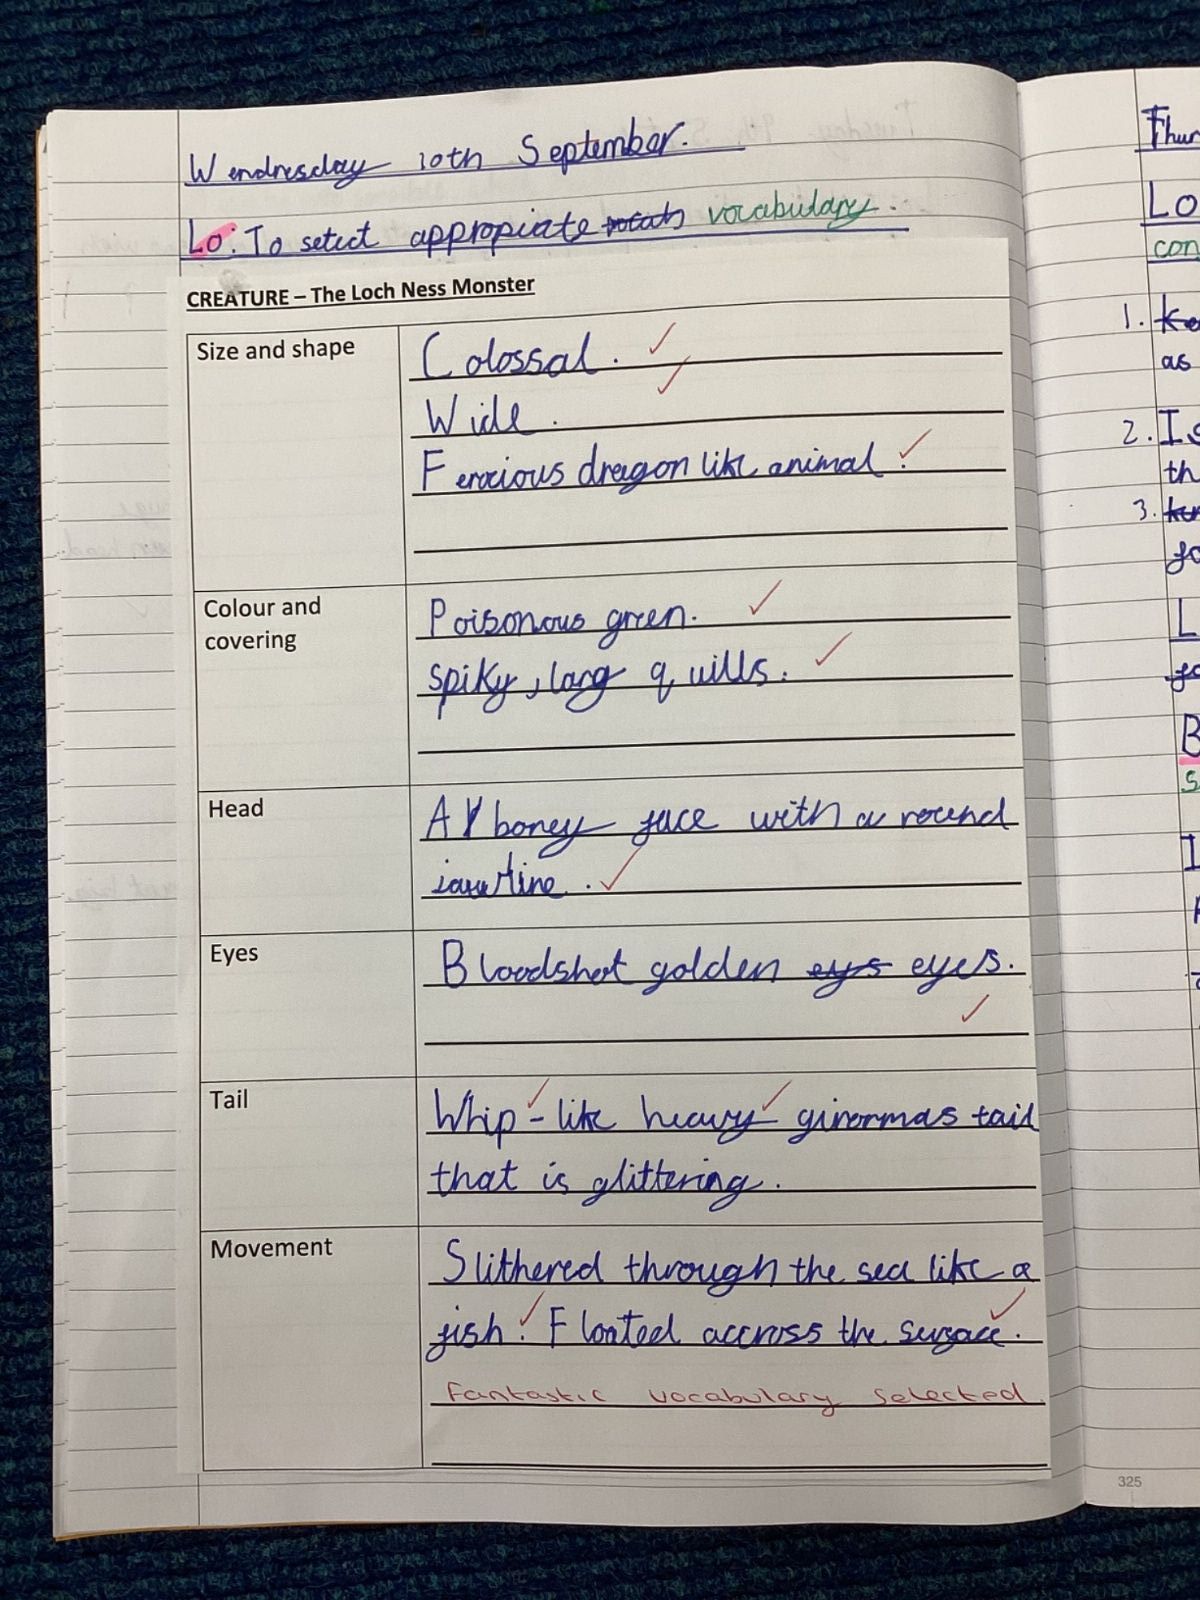 Wendresday 10th September.
Lo: To setect appropiate vocab vocabulary.
CREATURE – The Loch Ness Monster
Size and shape
Colossal.
Wide.
Ferocious dragon like animal.
Colour and
covering
Poisonous green.
Spiky, long quills.
Head
A boney face with a round
jawline.
Eyes
Bloodshot golden eys eyes.
Tail
Whip-like heavy ginormas tail
that is glittering.
Movement
Slithered through the sea like a
fish. Floated accross the surface.
Fantastic vocabulary selected.
Thur
Lo
con
1.
as
2. Is
th
3.
fo
L
B
S
I
325